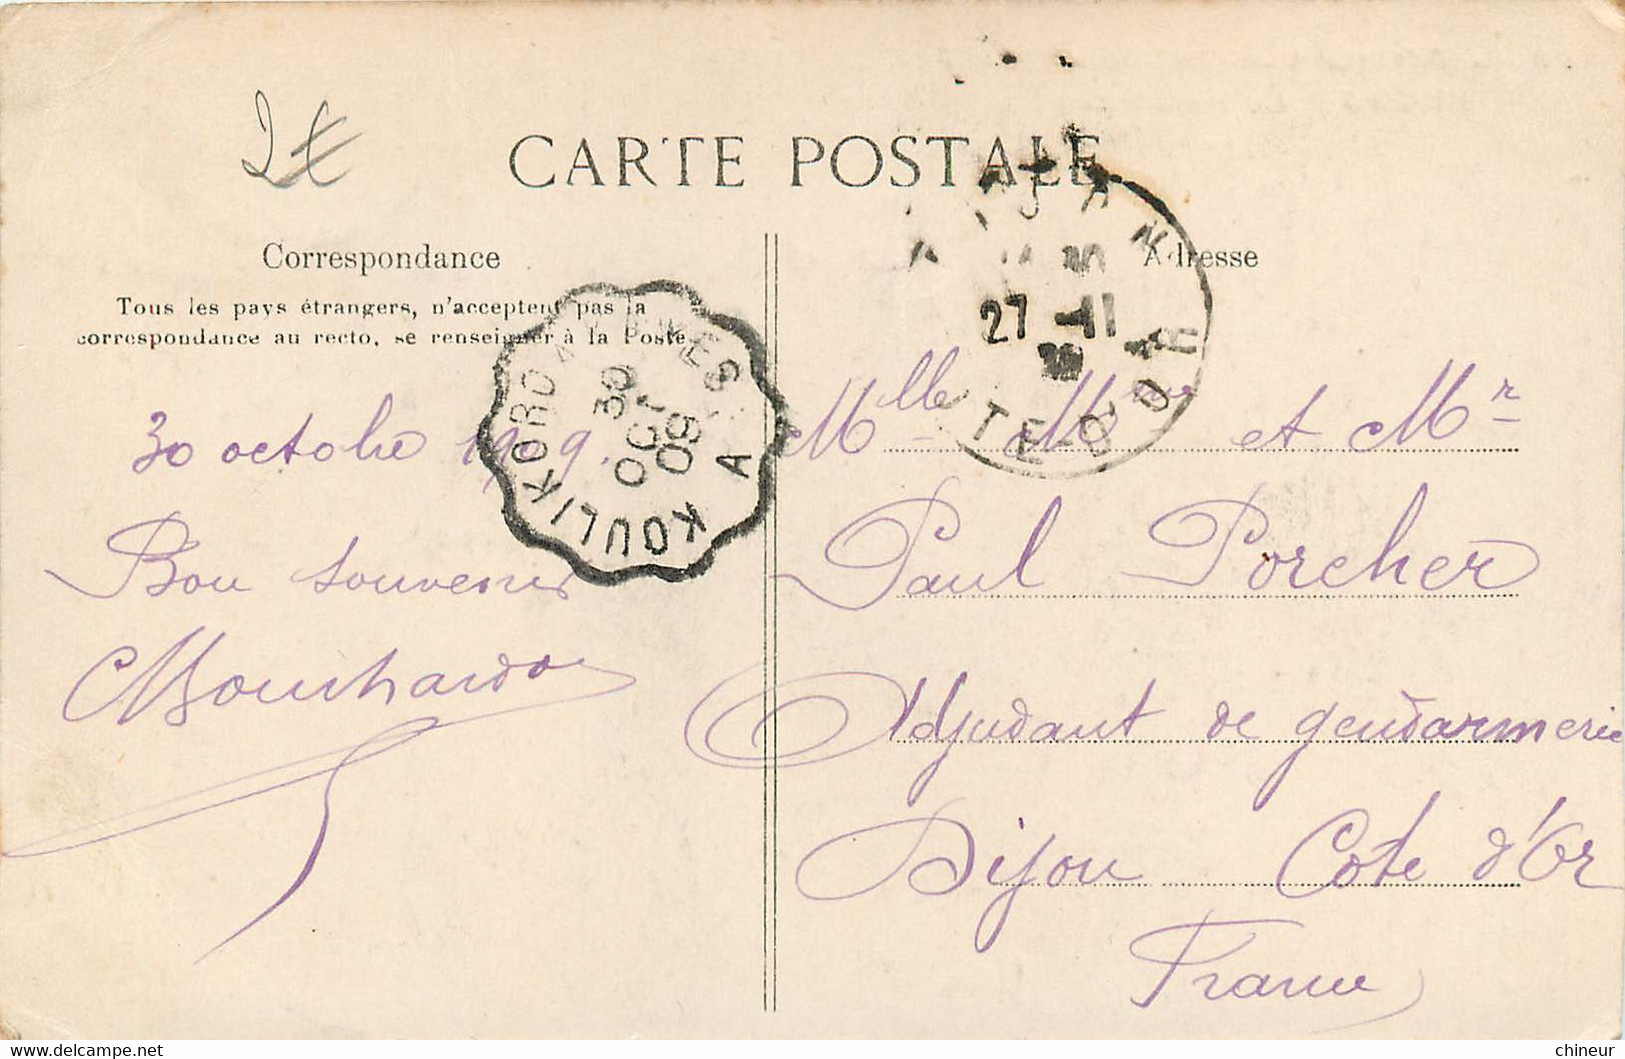 2€
CARTE POSTALE
Correspondance
Tous les pays étrangers, n'acceptent pas la
correspondance au recto, se renseigner à la Poste
30 octobre 1909.
Bon souvenir
KOULIKORO A KAYES A
30
OCT
09
Adresse
DIJON
27 - 11
COTE-D'OR
Mlle Mme et Mr
Paul Porcher
Adjudant de gendarmerie
Dijon Cote d'Or
France
chineur